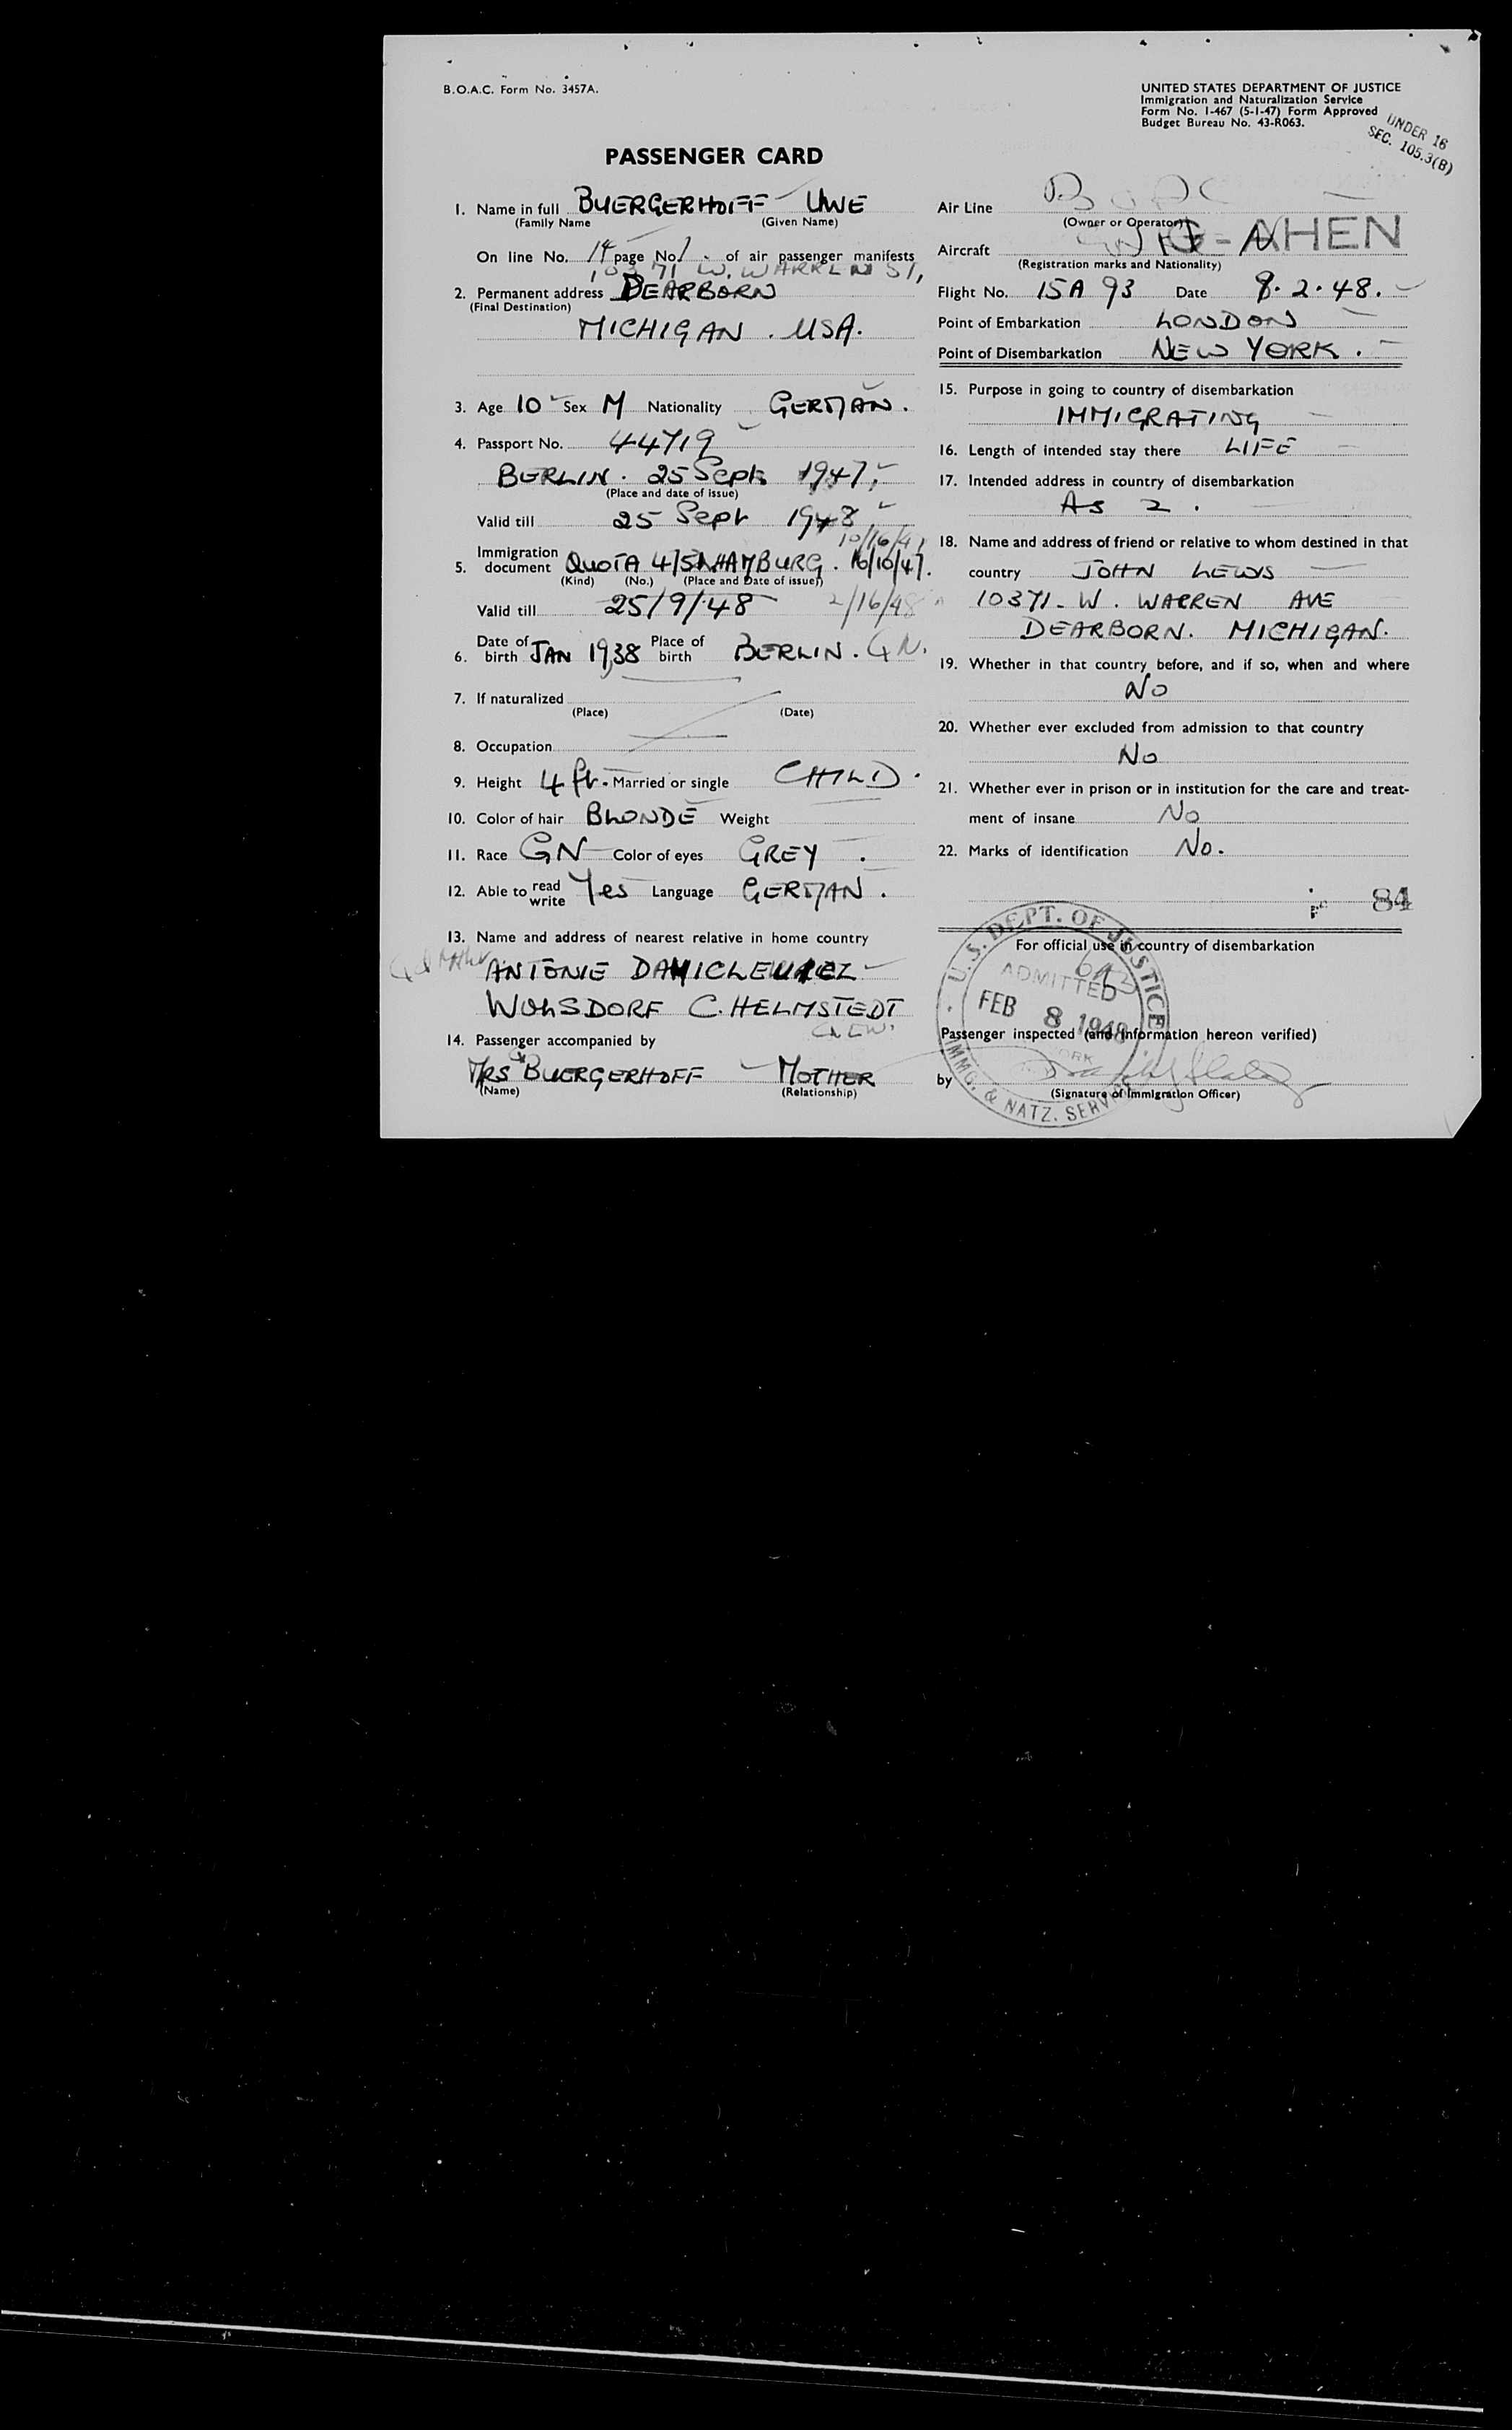 B.O.A.C. Form No. 3457A.
UNITED STATES DEPARTMENT OF JUSTICE
Immigration and Naturalization Service
Form No. I-467 (5-1-47) Form Approved
Budget Bureau No. 43-R063.
UNDER 16
SEC. 105.3(B)
PASSENGER CARD
1. Name in full BUERGERHOFF UWE
(Family Name (Given Name)
On line No. 14 page No. 1 of air passenger manifests
10371 W. WARREN ST,
2. Permanent address DEARBORN
(Final Destination)
MICHIGAN . USA.
3. Age 10 Sex M Nationality GERMAN.
4. Passport No. 44719
BERLIN. 25 Sept 1947.
(Place and date of issue)
Valid till 25 Sept 1948
10/16/47
5. Immigration document QUOTA HAMBURG. 16/10/47.
(Kind) (No.) (Place and Date of issue)
Valid till 25/9/48 2/16/48
6. Date of birth JAN 1938 Place of birth BERLIN. GN.
7. If naturalized
(Place) (Date)
8. Occupation
9. Height 4 ft. Married or single CHILD.
10. Color of hair BLONDE Weight
11. Race GN Color of eyes GREY .
12. Able to read write Yes Language GERMAN .
13. Name and address of nearest relative in home country
ANTONIE
WOLSDORF C. HELMSTEDT
14. Passenger accompanied by
MRS BUERGERHOFF MOTHER
(Name) (Relationship)
Air Line BOAC
(Owner or Operator)
Aircraft G-AHEN
(Registration marks and Nationality)
Flight No. 15A 93 Date 8.2.48.
Point of Embarkation LONDON
Point of Disembarkation NEW YORK.
15. Purpose in going to country of disembarkation
IMMIGRATING
16. Length of intended stay there LIFE
17. Intended address in country of disembarkation
As 2.
18. Name and address of friend or relative to whom destined in that
country JOHN LEWIS
10371-W. WARREN AVE
DEARBORN. MICHIGAN.
19. Whether in that country before, and if so, when and where
No
20. Whether ever excluded from admission to that country
No
21. Whether ever in prison or in institution for the care and treat-
ment of insane No
22. Marks of identification No.
84
For official use in country of disembarkation
U.S. DEPT. OF JUSTICE
ADMITTED
FEB 8 1948
IMMG. & NATZ. SERVICE
Passenger inspected (and information hereon verified)
by
(Signature of Immigration Officer)